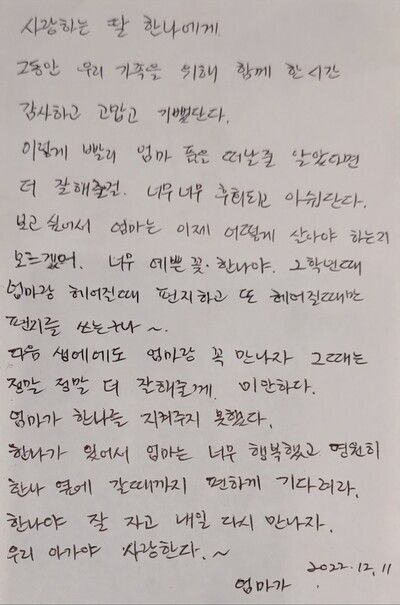 사랑하는 딸 한나에게
그동안 우리 가족을 위해 함께 한 시간
감사하고 고맙고 기뻤단다.
이렇게 빨리 엄마 품을 떠날줄 알았다면
더 잘해줄걸. 너무너무 후회되고 아쉬단다.
보고 싶어서 엄마는 이제 어떻게 살아야 하는지
모르겠어. 너무 예쁜 꽃. 한나야. 2학년때
엄마랑 헤어진때 편지하고 또 헤어질때만
편지를 쓰는구나~.
다음 생에에도 엄마랑 꼭 만나자 그때는
정말 정말 더 잘해줄게. 미안하다.
엄마가 한나를 지켜주지 못했다.
한나가 있어서 엄마는 너무 행복했고 영원히
한나 옆에 갈때까지 편하게 기다려라.
한나야 잘 자고 내일 다시 만나자.
우리 아가야 사랑한다.~
2022.12.11
엄마가.